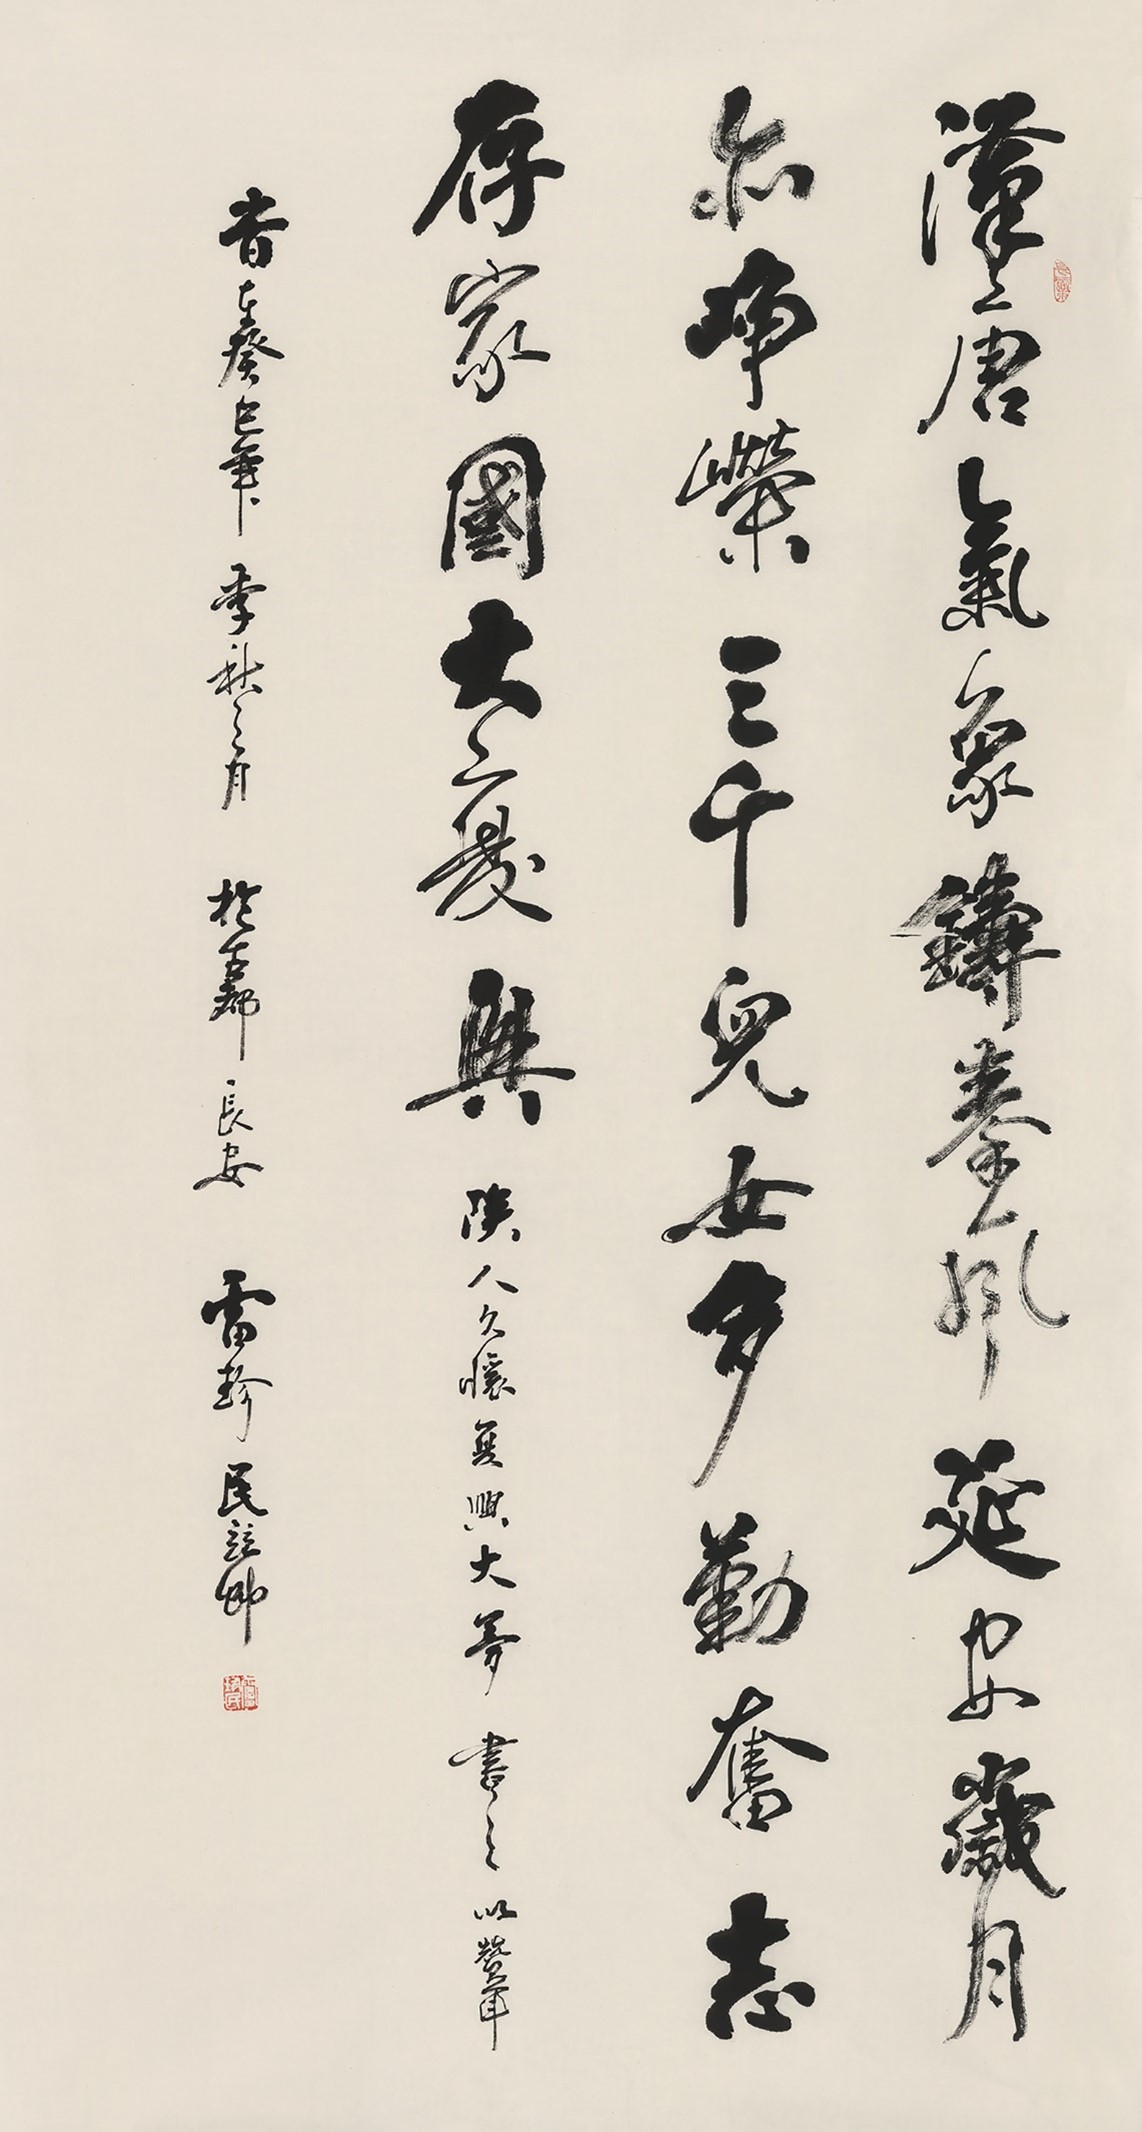 漢唐氣象鑄秦風延安歲月
亦崢嶸三千兒女多勤奮志
存家國大廈興 陝人久懷复興大夢 書之以贊
旹在癸巳年 季秋之月 於古都長安 雷珍民